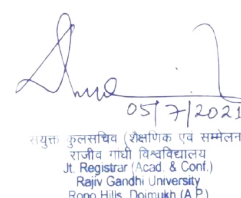 05/7/2021
संयुक्त कुलसचिव (शैक्षणिक एवं सम्मेलन
राजीव गांधी विश्वविद्यालय
Jt. Registrar (Acad. & Conf.)
Rajiv Gandhi University
Rono Hills, Doimukh (A.P.)